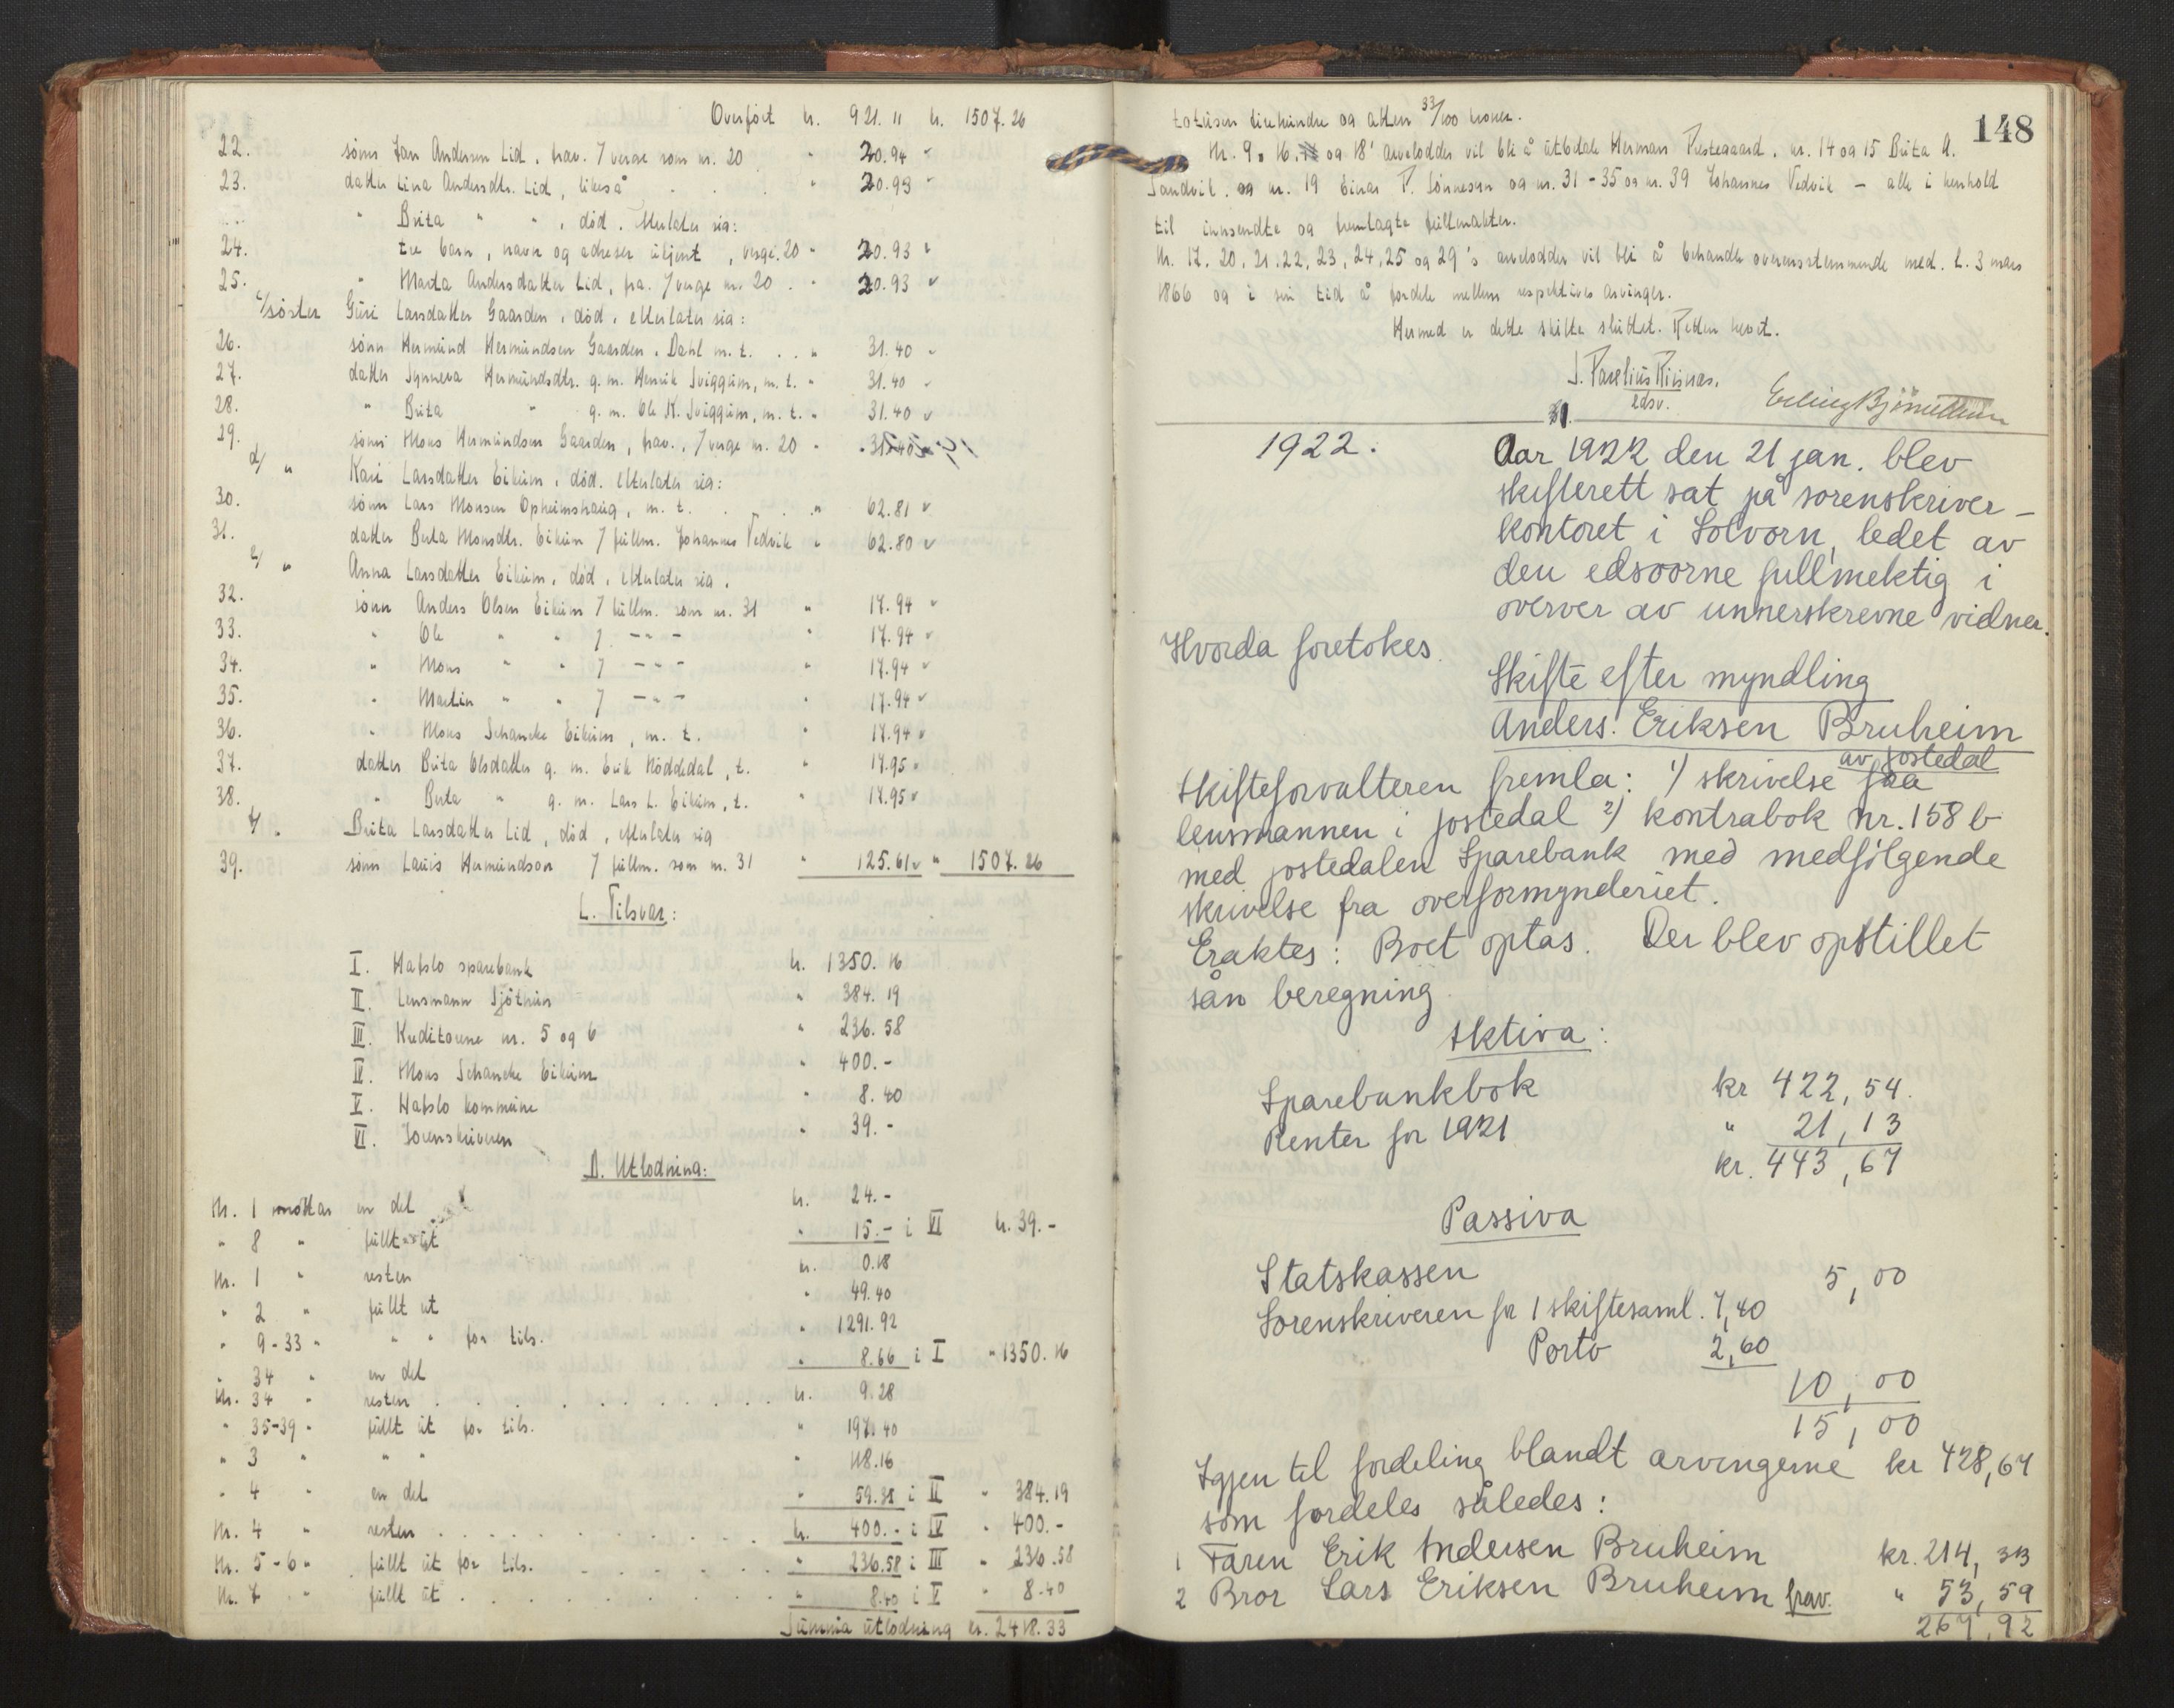 Overført kr. 921.11 kr. 1507.26
22. sønn Jan Andersen Lid, frav. / verge som nr. 20 " 20.94
23. datter Lina Andersdtr. Lid, likeså . . " 20.93
" Brita " " , død. Etterlater sig:
24. tre barn, navn og adresser ukjent, verge: 20 " 20.93
25. " Marta Andersdatter Lid, fra. / verge nr. 20 . " 20.93
c/ søster Guri Larsdatter Gaarden, død, etterlater sig:
26. sønn Hermund Hermundsen Gaarden, Dahl m. t. . . " 31.40
27. datter Synneva Hermundsdtr. g. m. Henrik Sviggum, m. t. " 31.40
28. " Brita " g. m. Ole K. Sviggum, m. t. " 31.40
29. sønn Mons Hermundsen Gaarden, frav., / verge nr. 20 " 31.40
d/ " Kari Larsdatter Eikum, død. Etterlater sig:
30. sønn Lars Monsen Opheimshaug, m. t. . . . " 62.81
31. datter Berta Monsdtr. Eikum / fullm. Johannes Vedvik " 62.80
e/ " Anna Larsdatter Eikum, død, etterlater sig.
32. sønn Anders Olsen Eikum / fullm. som nr. 31 " 17.94
33. " Ole " " / - " - " 17.94
34. " Mons " " / - " - " 17.94
35. " Martin " " / - " - " 17.94
36. " Mons Schancke Eikum, m. t. " 17.94
37. datter Brita Olsdatter g. m. Erik Høddedal, t. " 17.95
38. " Berta " g. m. Lars L. Eikum, t. " 17.95
f/ " Brita Larsdatter Lid, død, etterlater sig
39. sønn Lauis Hermundson / fullm. som nr. 31 " 125.61 " 1507.26
C. Tilsvar:
I. Hafslo sparebank kr. 1350.16
II. Lensmann Sjøthun " 384.19
III. Kreditorene nr. 5 og 6 " 236.58
IV. Mons Schancke Eikum " 400.-
V. Hafslo kommune " 8.40
VI. Sorenskriveren " 39.-
D. Utlodning:
Nr. 1 mottar en del kr. 24.-
" 8 " fullt ut " 15.- i VI kr. 39.-
Nr. 1 " resten kr. 0.18
" 2 " fullt ut " 49.40
" 9-33 " " " for tils. " 1291.92
" 34 " en del " 8.66 i I " 1350.16
Nr. 34 " resten . . . . . kr. 9.28
" 35-39 " fullt ut for tils. " 197.40
" 3 " " " " 118.16
" 4 " en del " 59.38 i II " 384.19
Nr. 4 " resten . . . . . kr. 400.- i IV " 400.-
Nr. 5-6 " fullt ut for tils. . . . " 236.58 i III " 236.58
Nr. 7 " fullt ut . . . . . " 8.40 i V " 8.40
Summa utlodning kr. 2418.33
148
totusen firehundre og atten 33/100 kroner.
Nr. 9, 16, og 18' arvelodder vil bli å utbetale Herman Prestegaard, nr. 14 og 15 Brita A.
Sandvik, og nr. 19 Einar P. Sønnesyn og nr. 31-35 og nr. 39 Johannes Vedvik – alle i henhold
til innsendte og fremlagte fullmakter.
Nr. 17, 20, 21, 22, 23, 24, 25 og 29's arvelodder vil bli å behandle overensstemmende med L. 3 mars
1866 og i sin tid å fordele mellem respektive arvinger.
Hermed er dette skifte sluttet. Retten hevet.
edsv.
31.
1922. Aar 1922 den 21 jan. blev
skifterett sat på sorenskriver-
kontoret i Solvorn, ledet av
den edsvorne fullmektig i
overver av unnerskrevne vidner.
Hvorda foretokes.
Skifte efter myndling
Anders Eriksen Bruheim
av Jostedal
Skifteforvalteren fremla: 1) skrivelse fra
lensmannen i Jostedal 2) kontrabok nr. 158 b
med Jostedalen Sparebank med medfølgende
skrivelse fra overformynderiet.
Eraktes: Boet optas. Der blev opstillet
sån beregning
Aktiva:
Sparebankbok kr 422,54.
Renter for 1921 " 21,13
kr. 443,67
Passiva
Statskassen 5,00
Sorenskriveren for 1 skiftesaml. 7,40
Porto 2,60
10,00
15,00
Igjen til fordeling blandt arvingerne kr 428,67
som fordeles således:
1 Faren Erik Andersen Bruheim kr. 214,33
2 Bror Lars Eriksen Bruheim frav. " 53,59
267,92